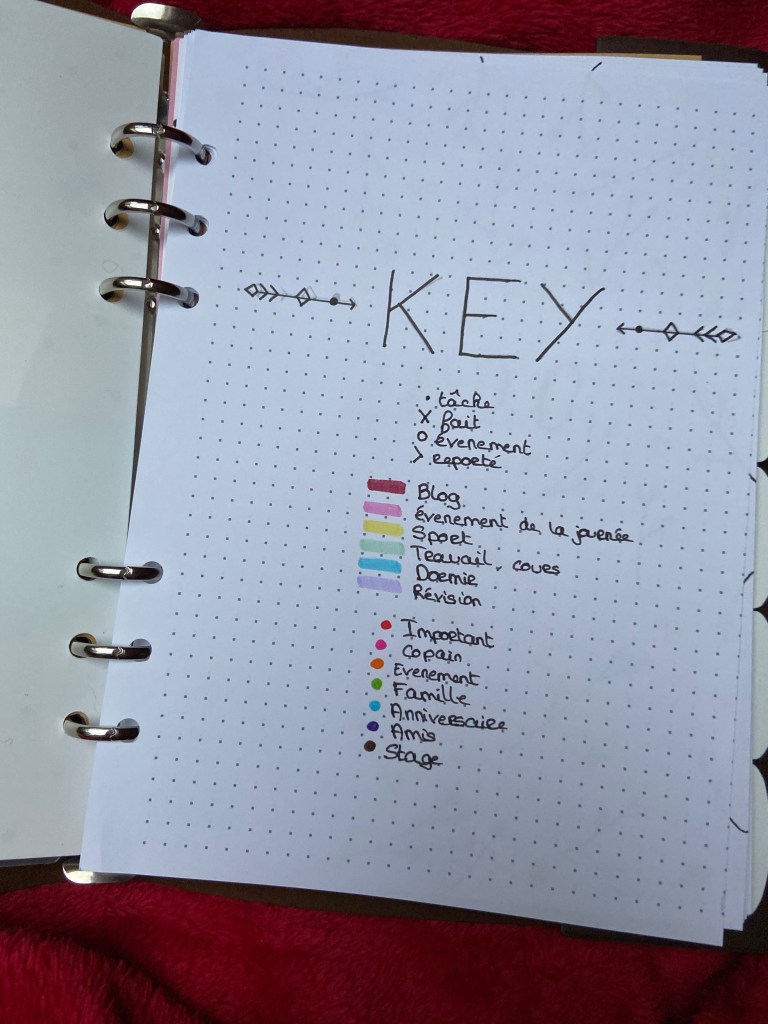 KEY
• tâche
X fait
O évenement
> reporté
Blog
évenement de la journée
Sport
Travail, cours
Dormie
Révision
Important
Copain
Evenement
Famille
Anniversaire
Amis
Stage